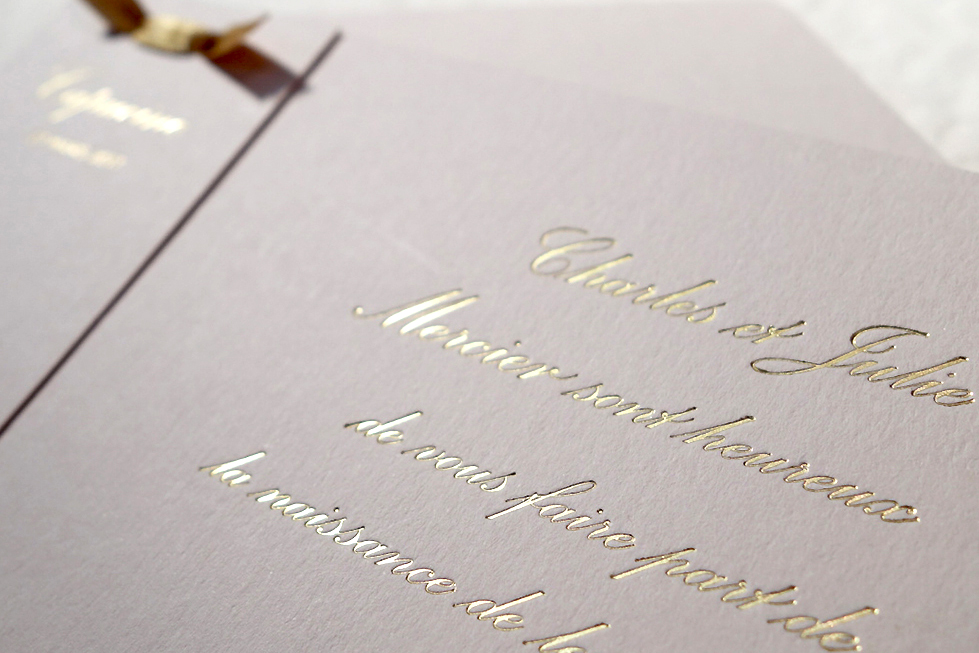 Charles et Julie
Mercier sont heureux
de vous faire part de
la naissance de